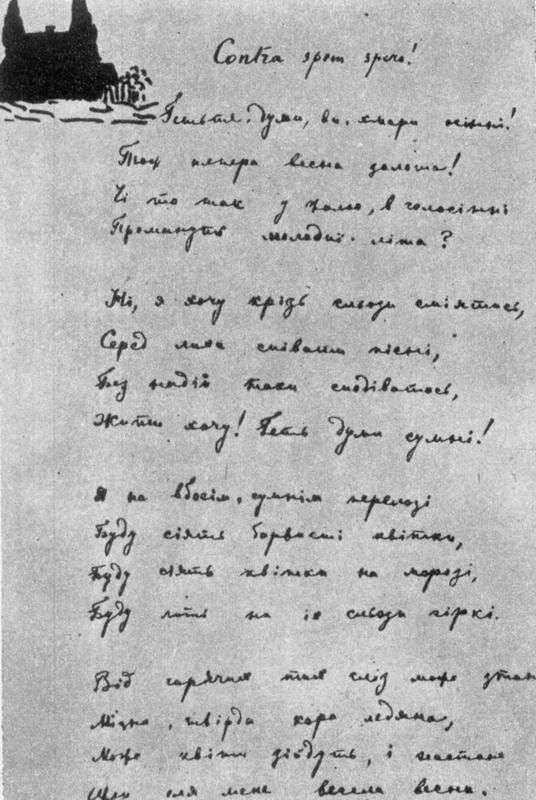 Contra spem spero!
Гетьте, думи, ви, хмари осінні!
Тож тепера весна золота!
Чі то так у жалю, в голосінні
Проминуть молодиї літа?
Ні, я хочу крізь сльози сміятись,
Серед лиха співати пісні,
Без надій таки сподіватись,
Жити хочу! Геть думи сумні!
Я на вбогім, сумнім перелозі
Буду сіять барвисті квітки,
Буду сіять квітки на морозі,
Буду лить на їх сльози гіркі.
Від гарячих тих сліз може зтан
Міцна, твірда кора ледяна,
Може квіти зійдуть, і настане
Щей для мене весела весна.